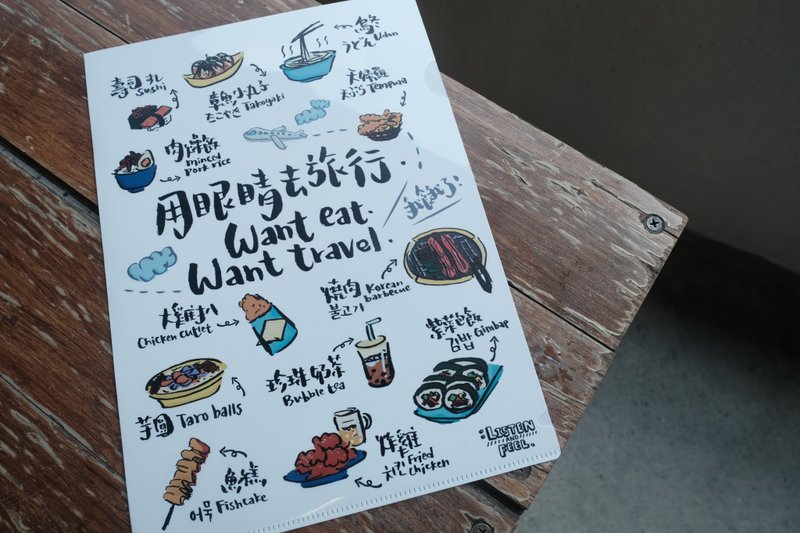 烏冬
うどん Udon
壽司 すし
Sushi
章魚小丸子
たこやき Takoyaki
天婦羅
Tempura
肉燥飯
minced
Pork rice
用眼睛去旅行.
Want eat.
Want travel.
我餓了!
燒肉 Korean
불고기 barbecue
大雞扒
Chicken cutlet
紫菜包飯
김밥 Gimbap
珍珠奶茶
Bubble tea
芋圓 Taro balls
炸雞
치킨 Fried
Chicken
魚糕
어묵 Fishcake
:LISTEN
AND
FEEL.